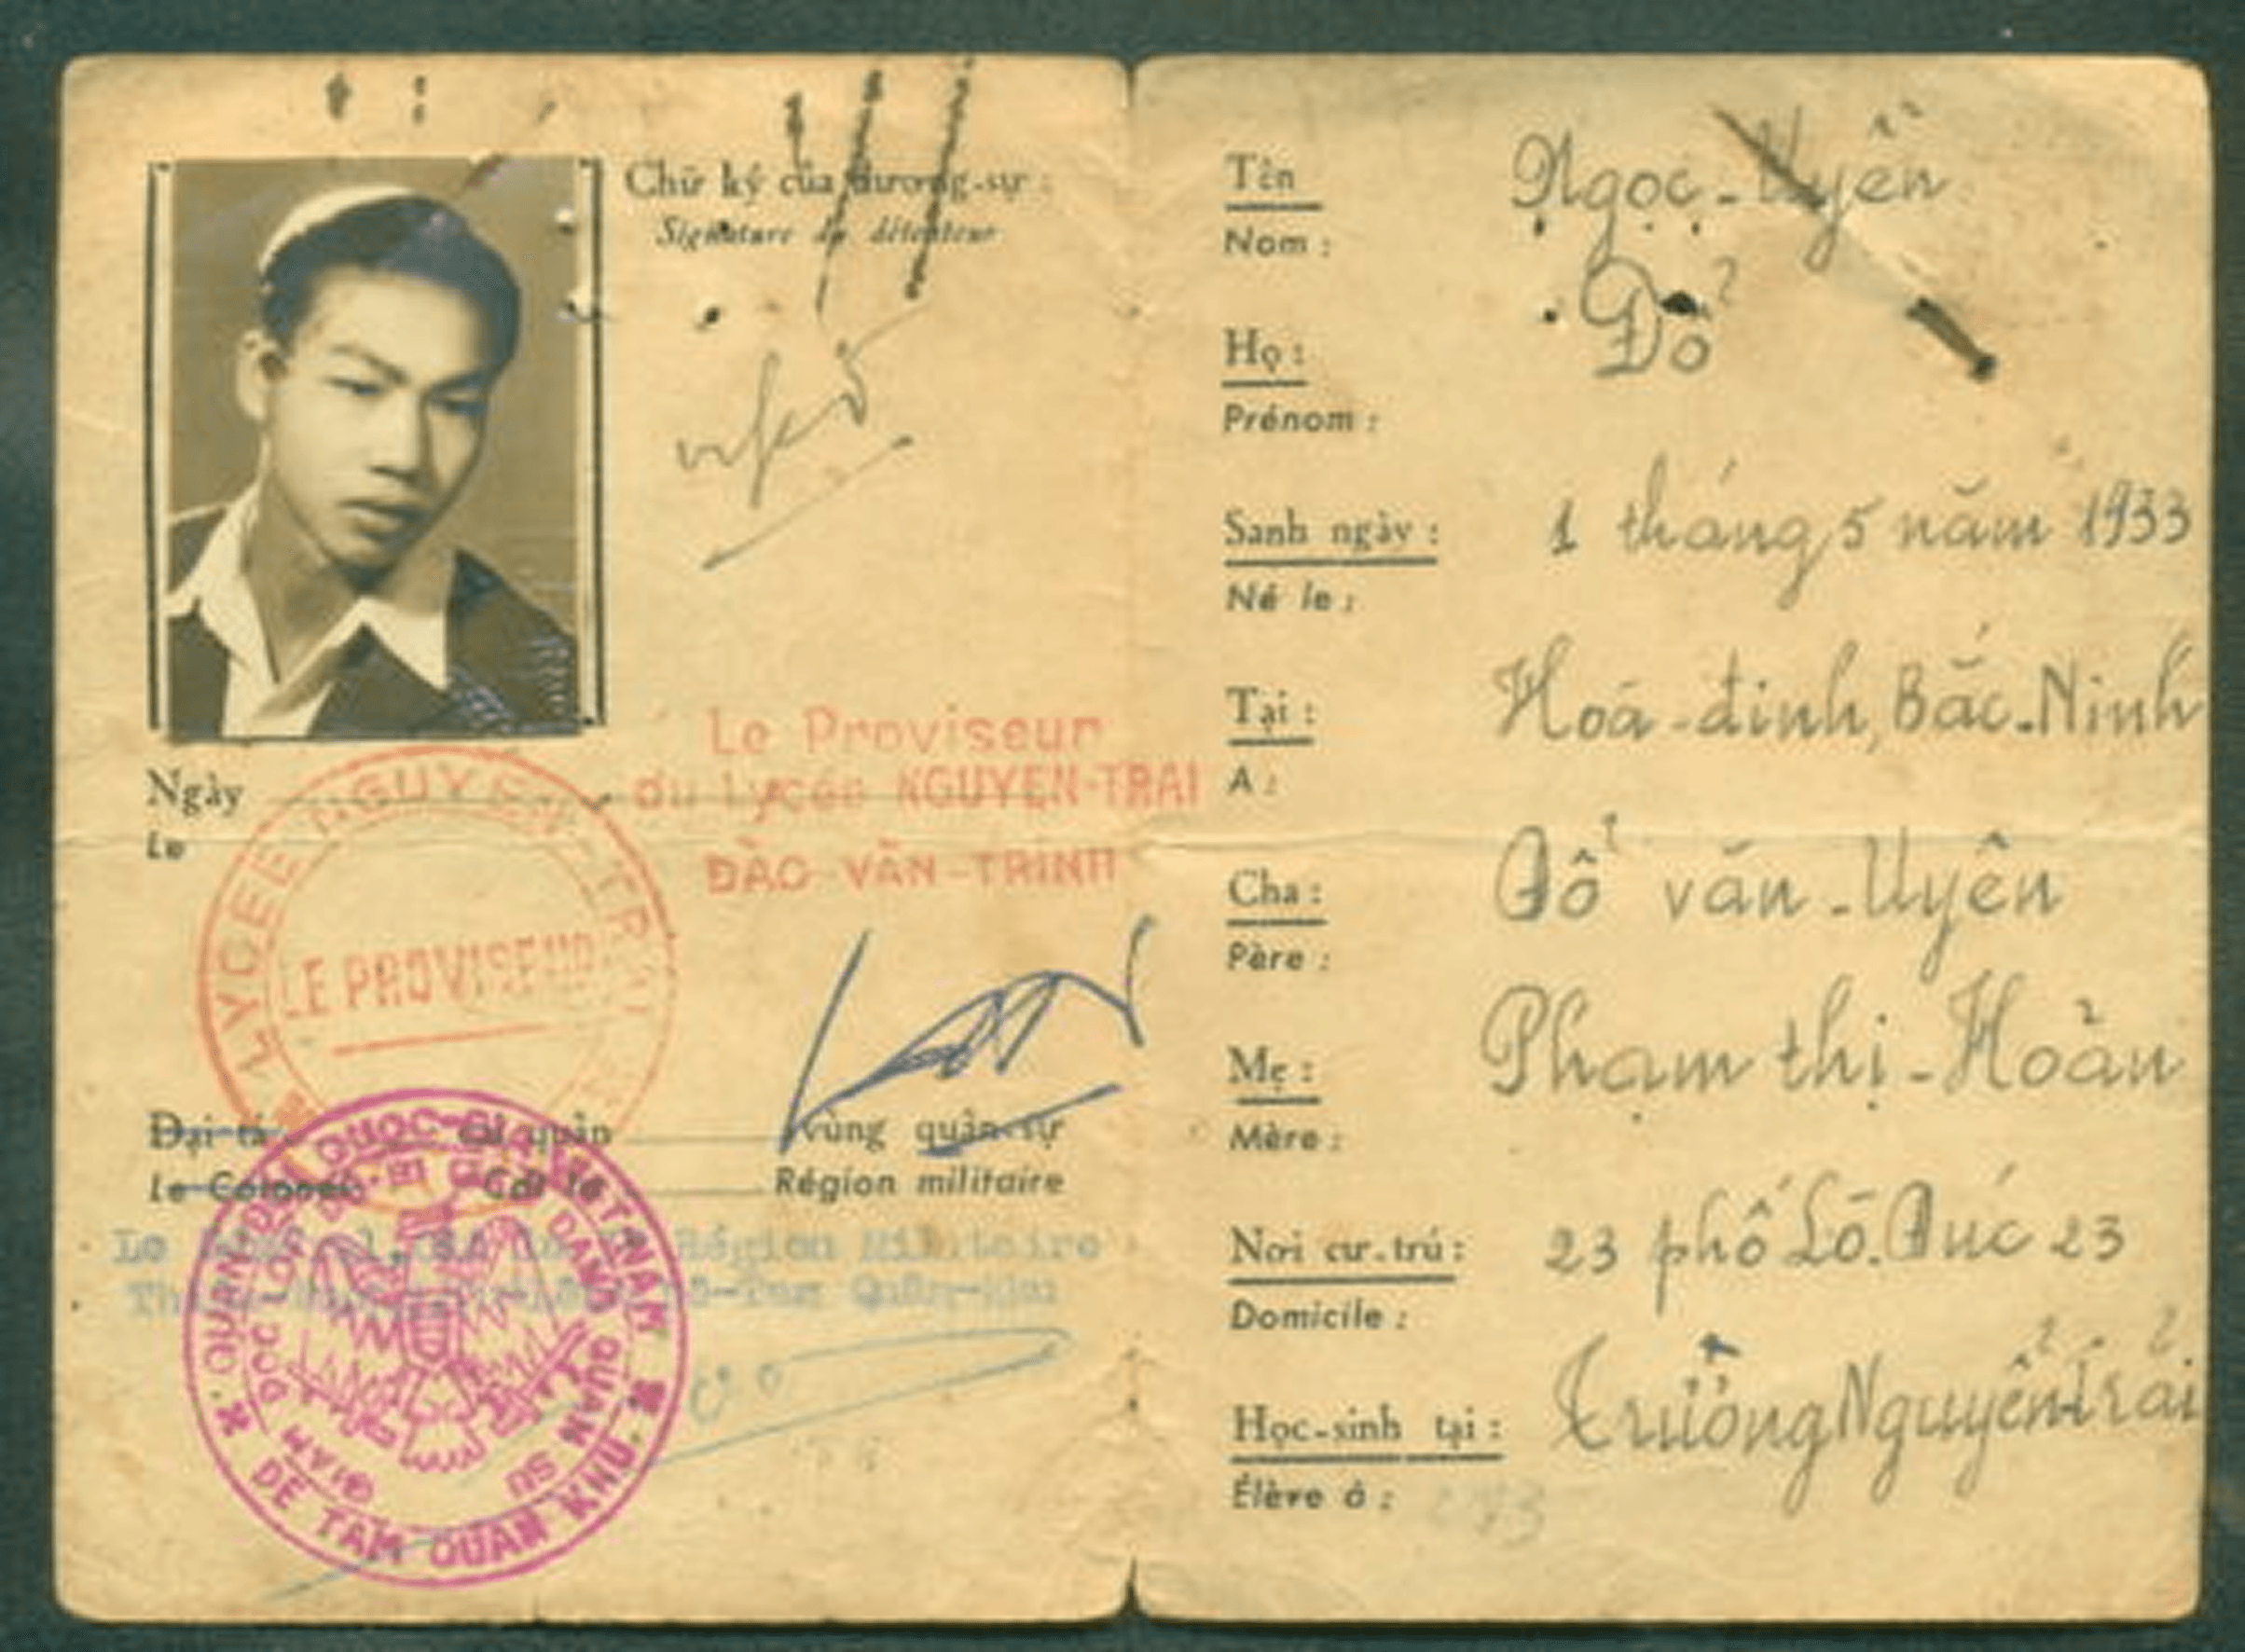 Chữ ký của đương-sự :
Signature du détenteur
Ngày
Le
LYCEE NGUYEN-TRAI
LE PROVISEUR
Le Proviseur
du Lycée NGUYEN-TRAI
ĐÀO VĂN-TRINH
Đại tá Chỉ quân vùng quân-sự
Le Colonel Cdt la Région militaire
Le Région Militaire
Quân-Khu
QUAN DOI QUOC-GIA VIET NAM
DE TAM QUAN KHU
Tên Ngọc-Uyển
Nom :
Họ : Đỗ
Prénom :
Sanh ngày : 1 tháng 5 năm 1933
Né le :
Tại : Hoà-đình, Bắc-Ninh
A :
Cha : Đỗ văn-Uyên
Père :
Mẹ : Phạm thị-Hoản
Mère :
Nơi cư-trú : 23 phố Lò-Đúc 23
Domicile :
Học-sinh tại : Trường Nguyễn Trãi
Élève à :